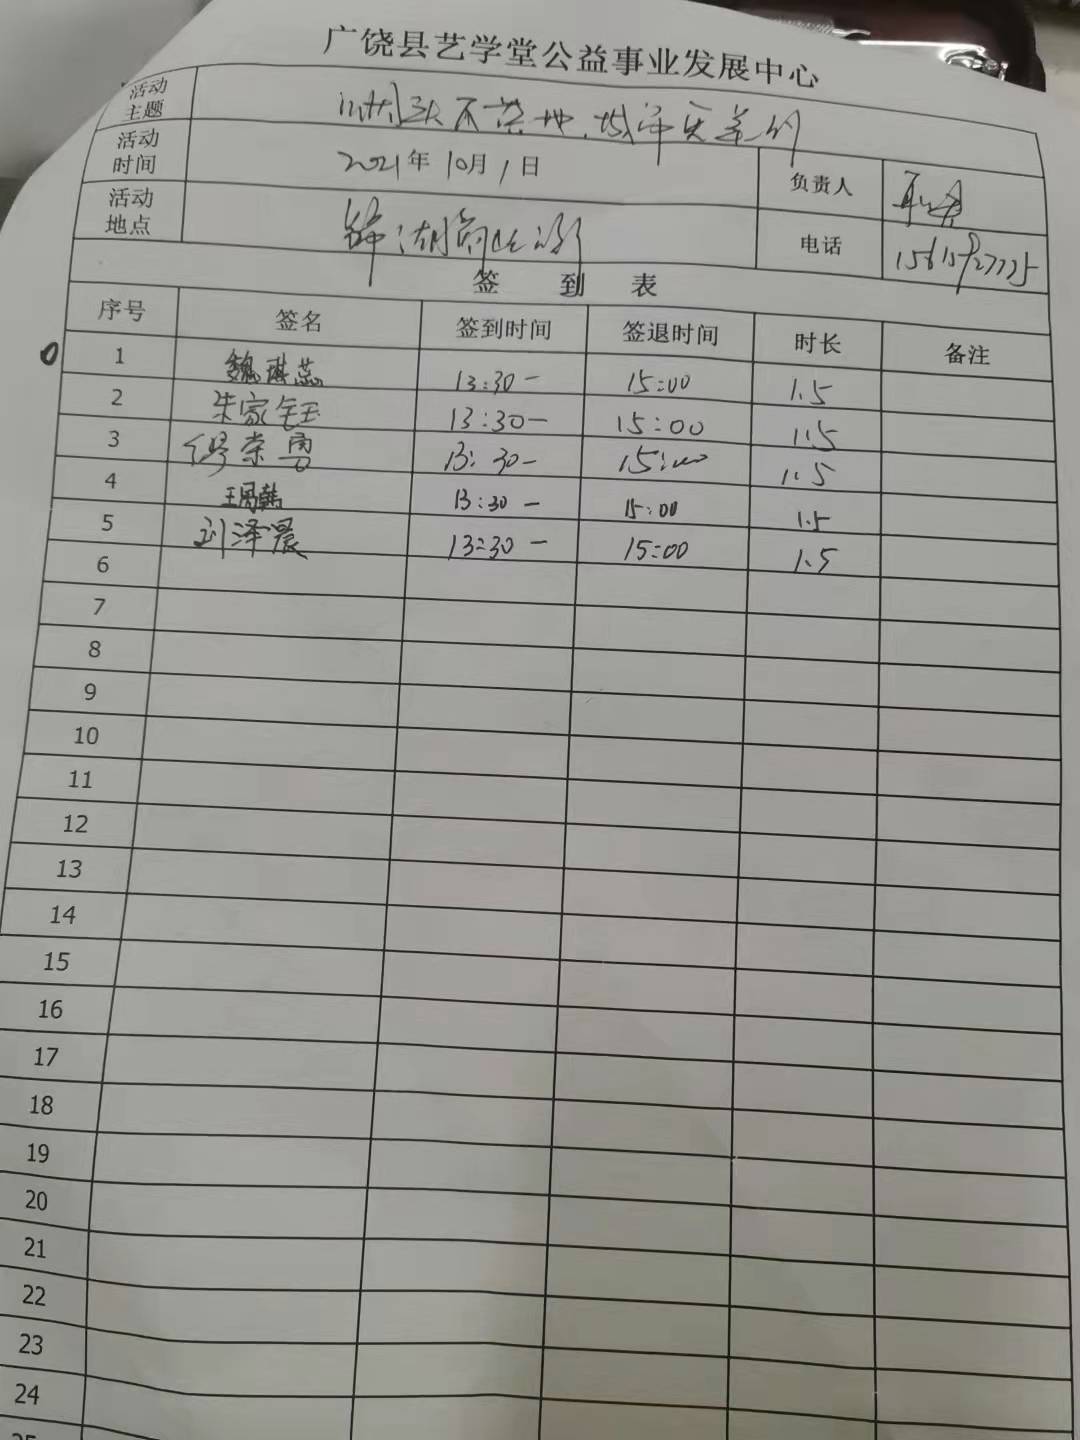 广饶县艺学堂公益事业发展中心
活动主题 烟头不落地,城市更美的
活动时间 2021年10月1日 负责人
活动地点 电话
签到表
序号 签名 签到时间 签退时间 时长 备注
1 魏琪蕊 13:30- 15:00 1.5
2 朱家钰 13:30- 15:00 1.5
3 13:30- 15:00 1.5
4 13:30- 15:00 1.5
5 刘泽晨 13:30- 15:00 1.5
6
7
8
9
10
11
12
13
14
15
16
17
18
19
20
21
22
23
24
25